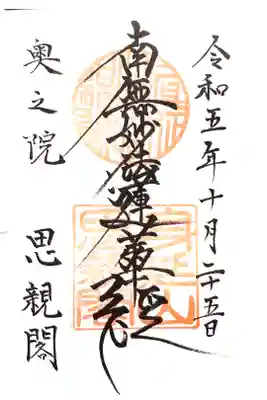 令和五年十月二十五日
南無妙法蓮華経
奥之院 思親閣